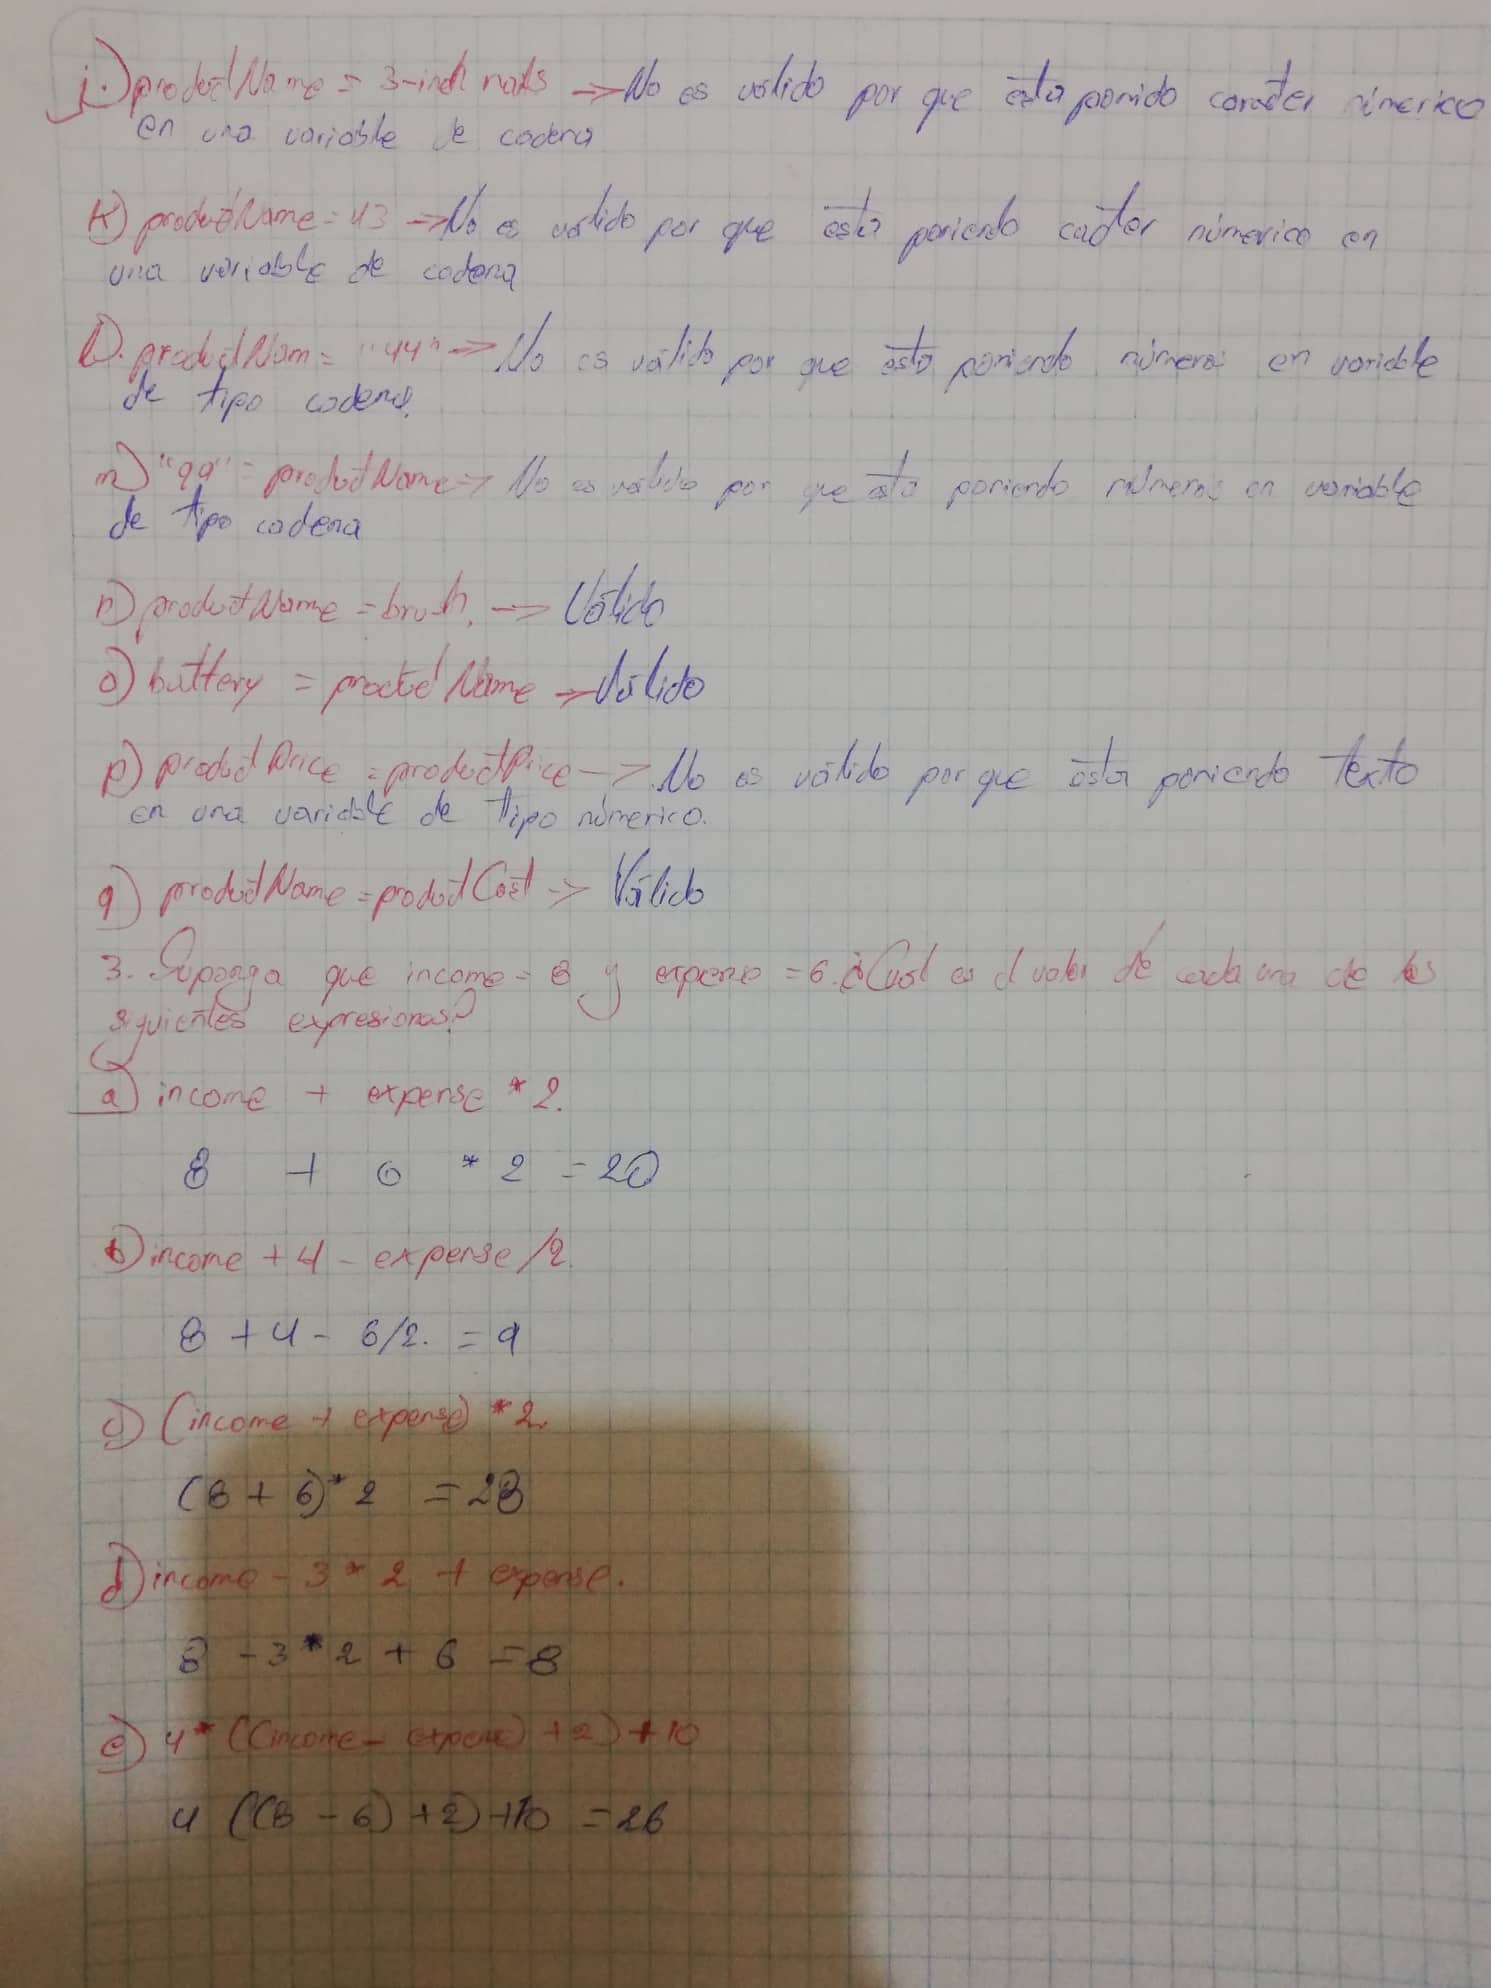 j.) productName = 3-inch nails → No es válido por que esta ponido caracter númerico
en una variable de cadena
K) productName = 43 → No es válido por que esta poniendo cacter númerico en
una variable de cadena
l). productNam = "44" → No es válido por que esta poniendo números en variable
de tipo cadena.
m) "99" = productName → No es válido por que esta poniendo números en variable
de tipo cadena
n) productName = brush. → Válido
o) battery = productName → Válido
p) productPrice = productPrice → No es válido porque esta poniendo texto
en una variable de tipo númerico.
q) productName = productCost → Válido
3. Suponga que income = 8 y expense = 6. ¿Cuál es el valor de cada una de las
siguientes expresiones?
a) income + expense * 2.
8 + 6 * 2 = 20
b) income + 4 - expense/2.
8 + 4 - 6/2. = 9
c) (income + expense) * 2.
(8 + 6) * 2 = 28
d) income - 3 * 2 + expense.
8 - 3 * 2 + 6 = 8
e) 4 * ((income - expense) + 2) + 10
4 ((8 - 6) + 2) + 10 = 26